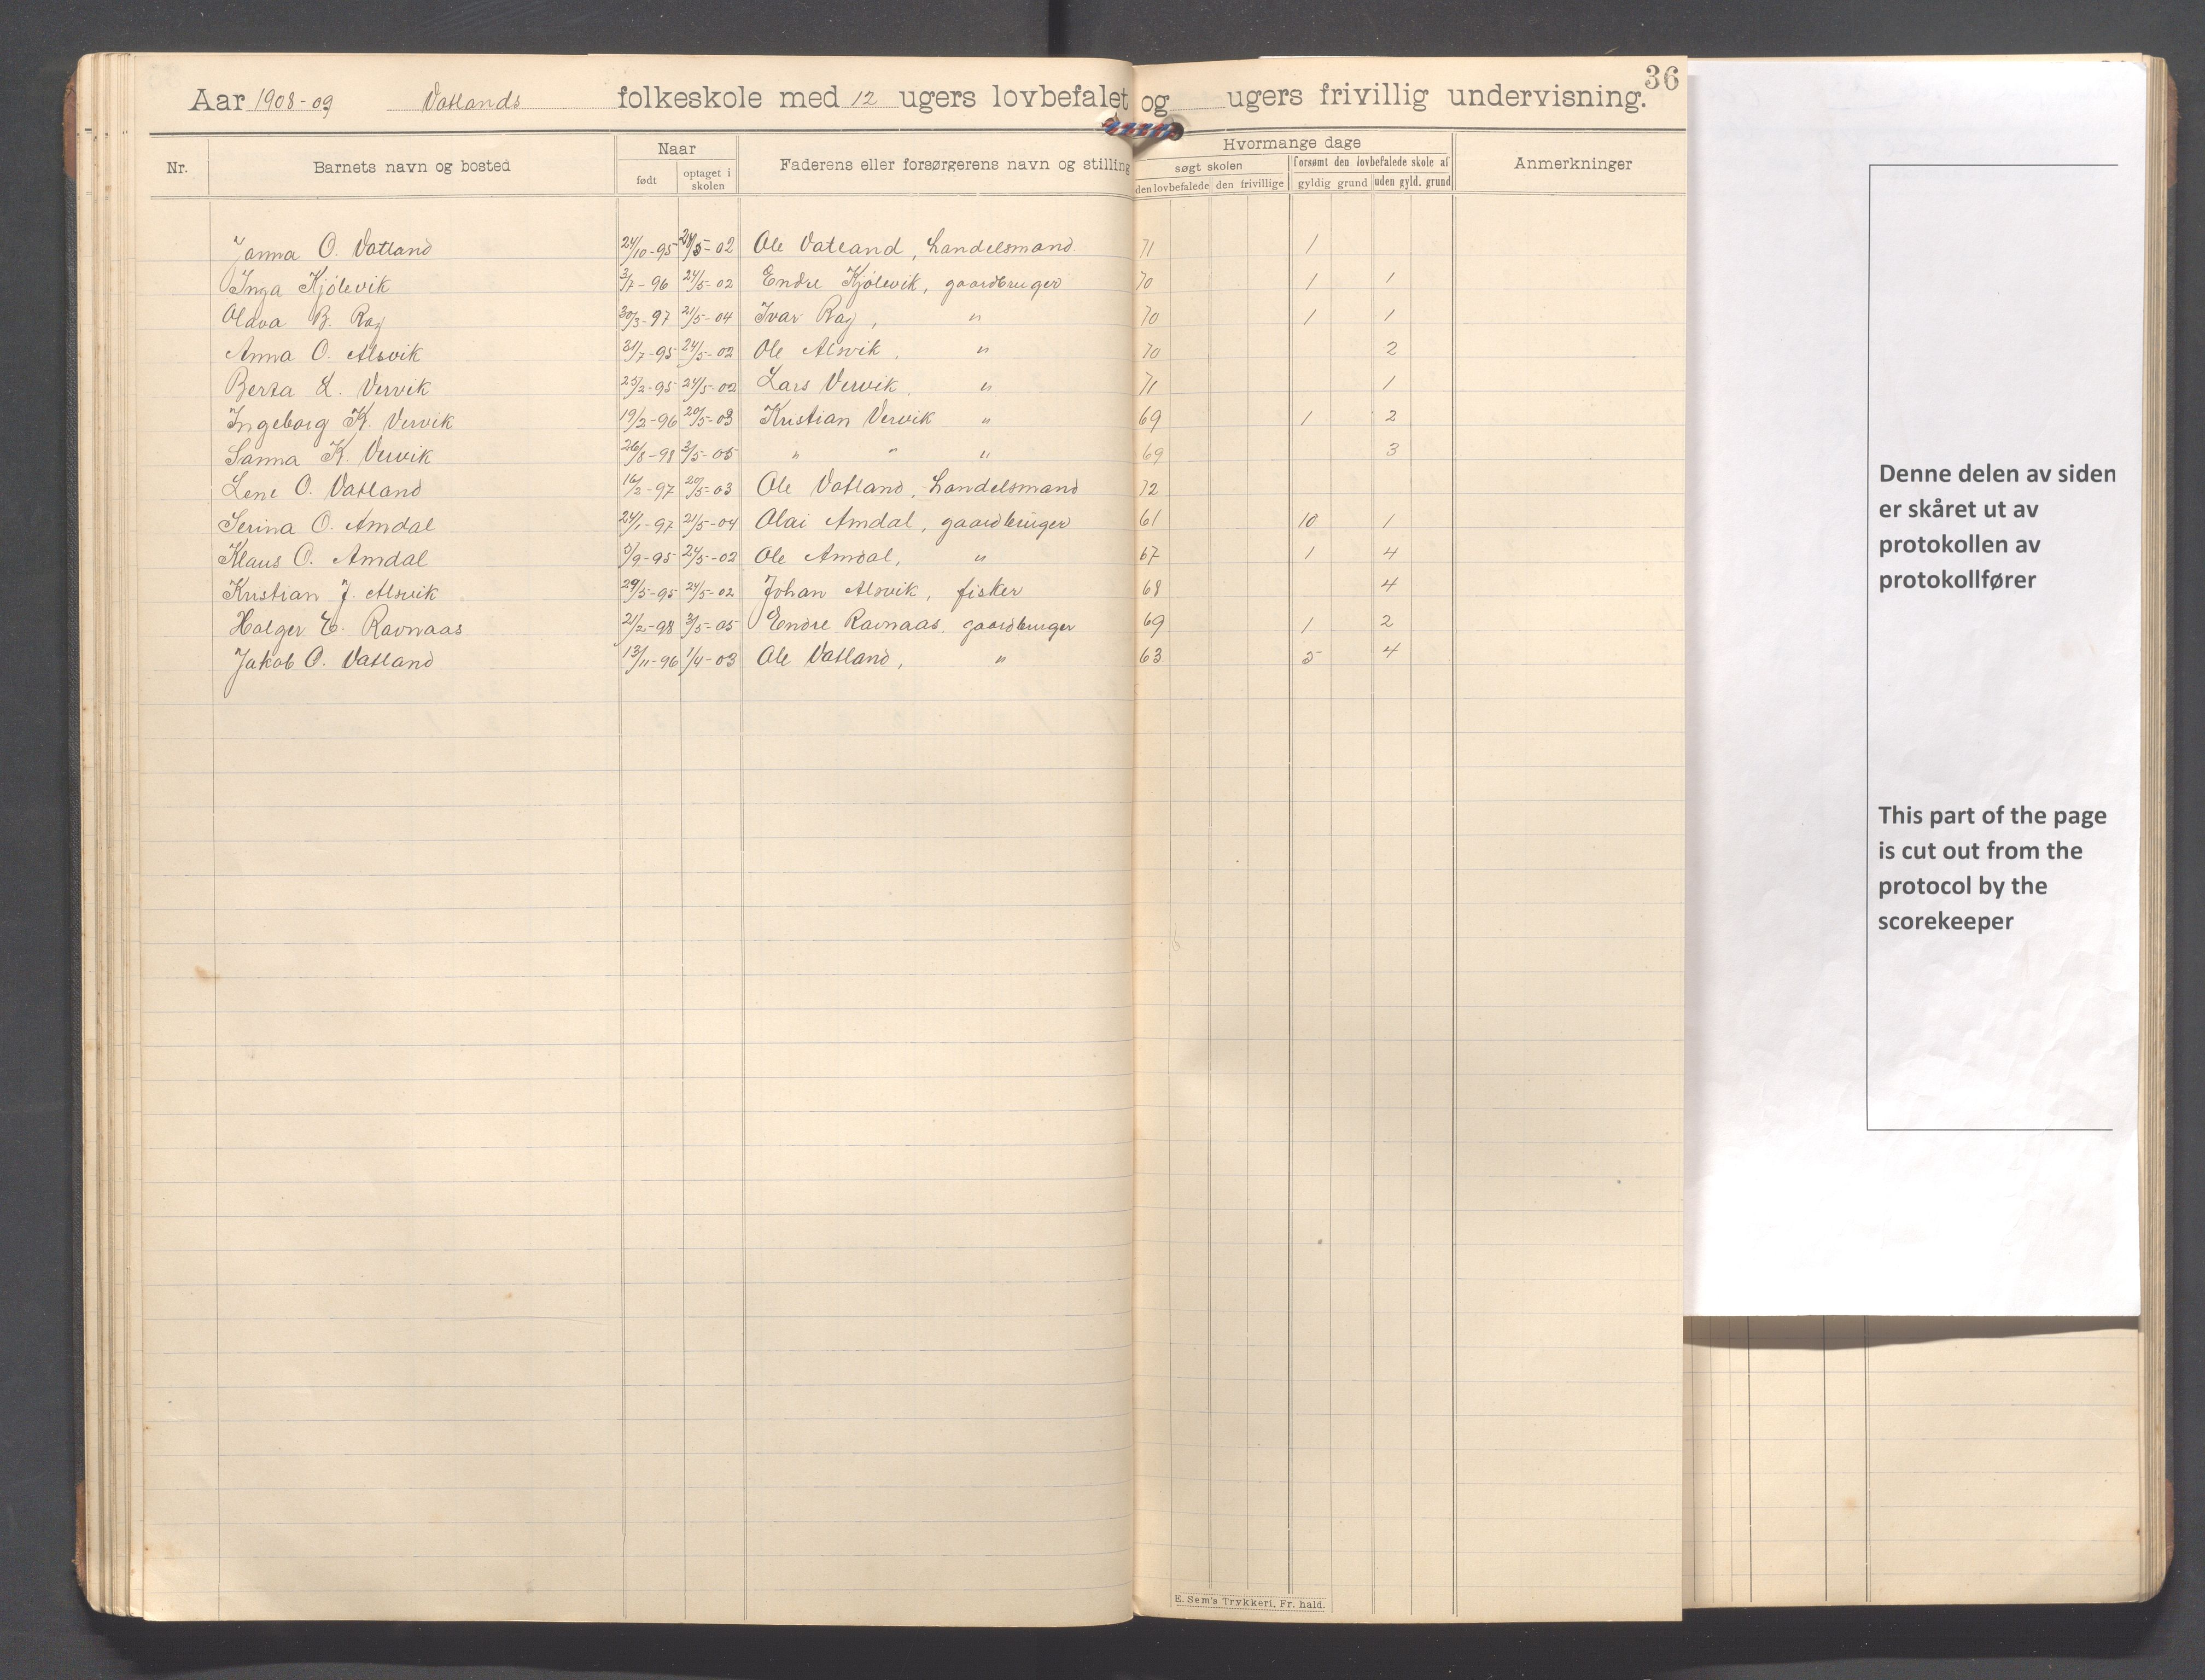 36
Aar 1908-09 Vatlands folkeskole med 12 ugers lovbefalet og ugers frivillig undervisning.
Nr. Barnets navn og bosted Naar Faderens eller forsørgerens navn og stilling Hvormange dage Anmerkninger
født optaget i skolen søgt skolen forsømt den lovbefalede skole af
den lovbefalede den frivillige gyldig grund uden gyld. grund
Janna O. Vatland 24/10-95 24/5-02 Ole Vatland, Handelsmand. 71 1
Inga Kjölevik 3/7-96 24/5-02 Endre Kjölevik, gaardbruger 70 1 1
Olava B. Rag 30/3-97 21/5-04 Ivar Rag, " 70 1 1
Anna O. Alsvik 31/7-95 24/5-02 Ole Alsvik, " 70 2
Berta L. Vervik 25/2-95 24/5-02 Lars Vervik, " 71 1
Ingeborg K. Vervik 19/2-96 20/5-03 Kristian Vervik " 69 1 2
Sanna K. Vervik 26/8-98 3/5-05 " " " 69 3
Lene O. Vatland 16/2-97 20/5-03 Ole Vatland, Handelsmand 72
Serina O. Amdal 24/1-97 21/5-04 Olai Amdal, gaardbruger 61 10 1
Klaus O. Amdal 5/9-95 24/5-02 Ole Amdal, " 67 1 4
Kristian J. Alsvik 29/5-95 24/5-02 Johan Alsvik, fisker 68 4
Holger E. Ravnaas 21/2-98 3/5-05 Endre Ravnaas, gaardbruger 69 1 2
Jakob O. Vatland 13/11-96 1/4-03 Ole Vatland, " 63 5 4
E. Sem's Trykkeri, Fr. hald.
Denne delen av siden
er skåret ut av
protokollen av
protokollfører
This part of the page
is cut out from the
protocol by the
scorekeeper